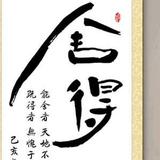 舍得
能舍者天地不
既得者無愧于
己亥